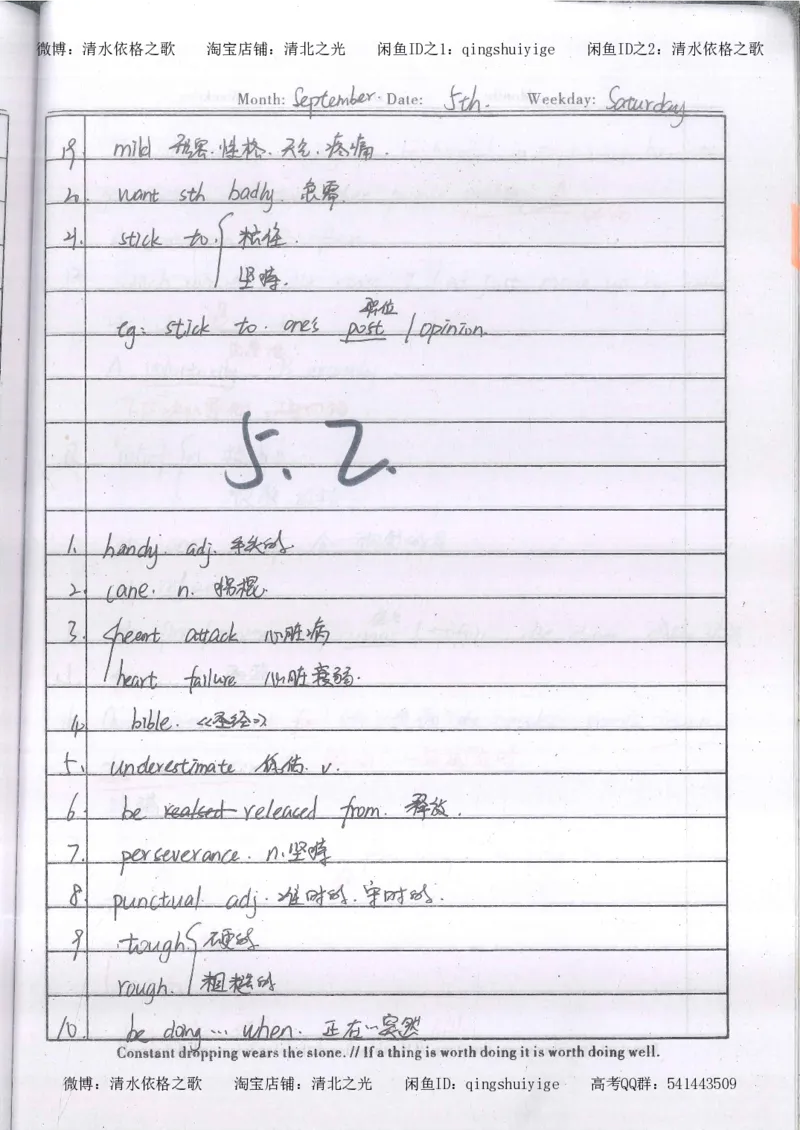 微博：清水依格之歌 淘宝店铺：清北之光 闲鱼ID之1：qingshuiyige 闲鱼ID之2：清水依格之歌
Month: September. Date: 5th. Weekday: Saturday
19. mild 程度.性格.天气.疼痛.
20. want sth badly. 急需.
21. stick to. { 粘住.
坚持.
职位
eg: stick to one's post / opinion.
5.2.
1. handy. adj. 手头的.
2. cane. n. 拐棍.
3. { heart attack 心脏病
heart failure 心脏衰弱.
4. bible. 《圣经》
5. underestimate 低估. v.
6. be realsed released from. 释放.
7. perseverance. n.坚持
8. punctual adj. 准时的.守时的.
9. tough { 硬的
rough. 粗糙的
10. be doing … when. 正在…突然
Constant dropping wears the stone. // If a thing is worth doing it is worth doing well.
微博：清水依格之歌 淘宝店铺：清北之光 闲鱼ID：qingshuiyige 高考QQ群：541443509